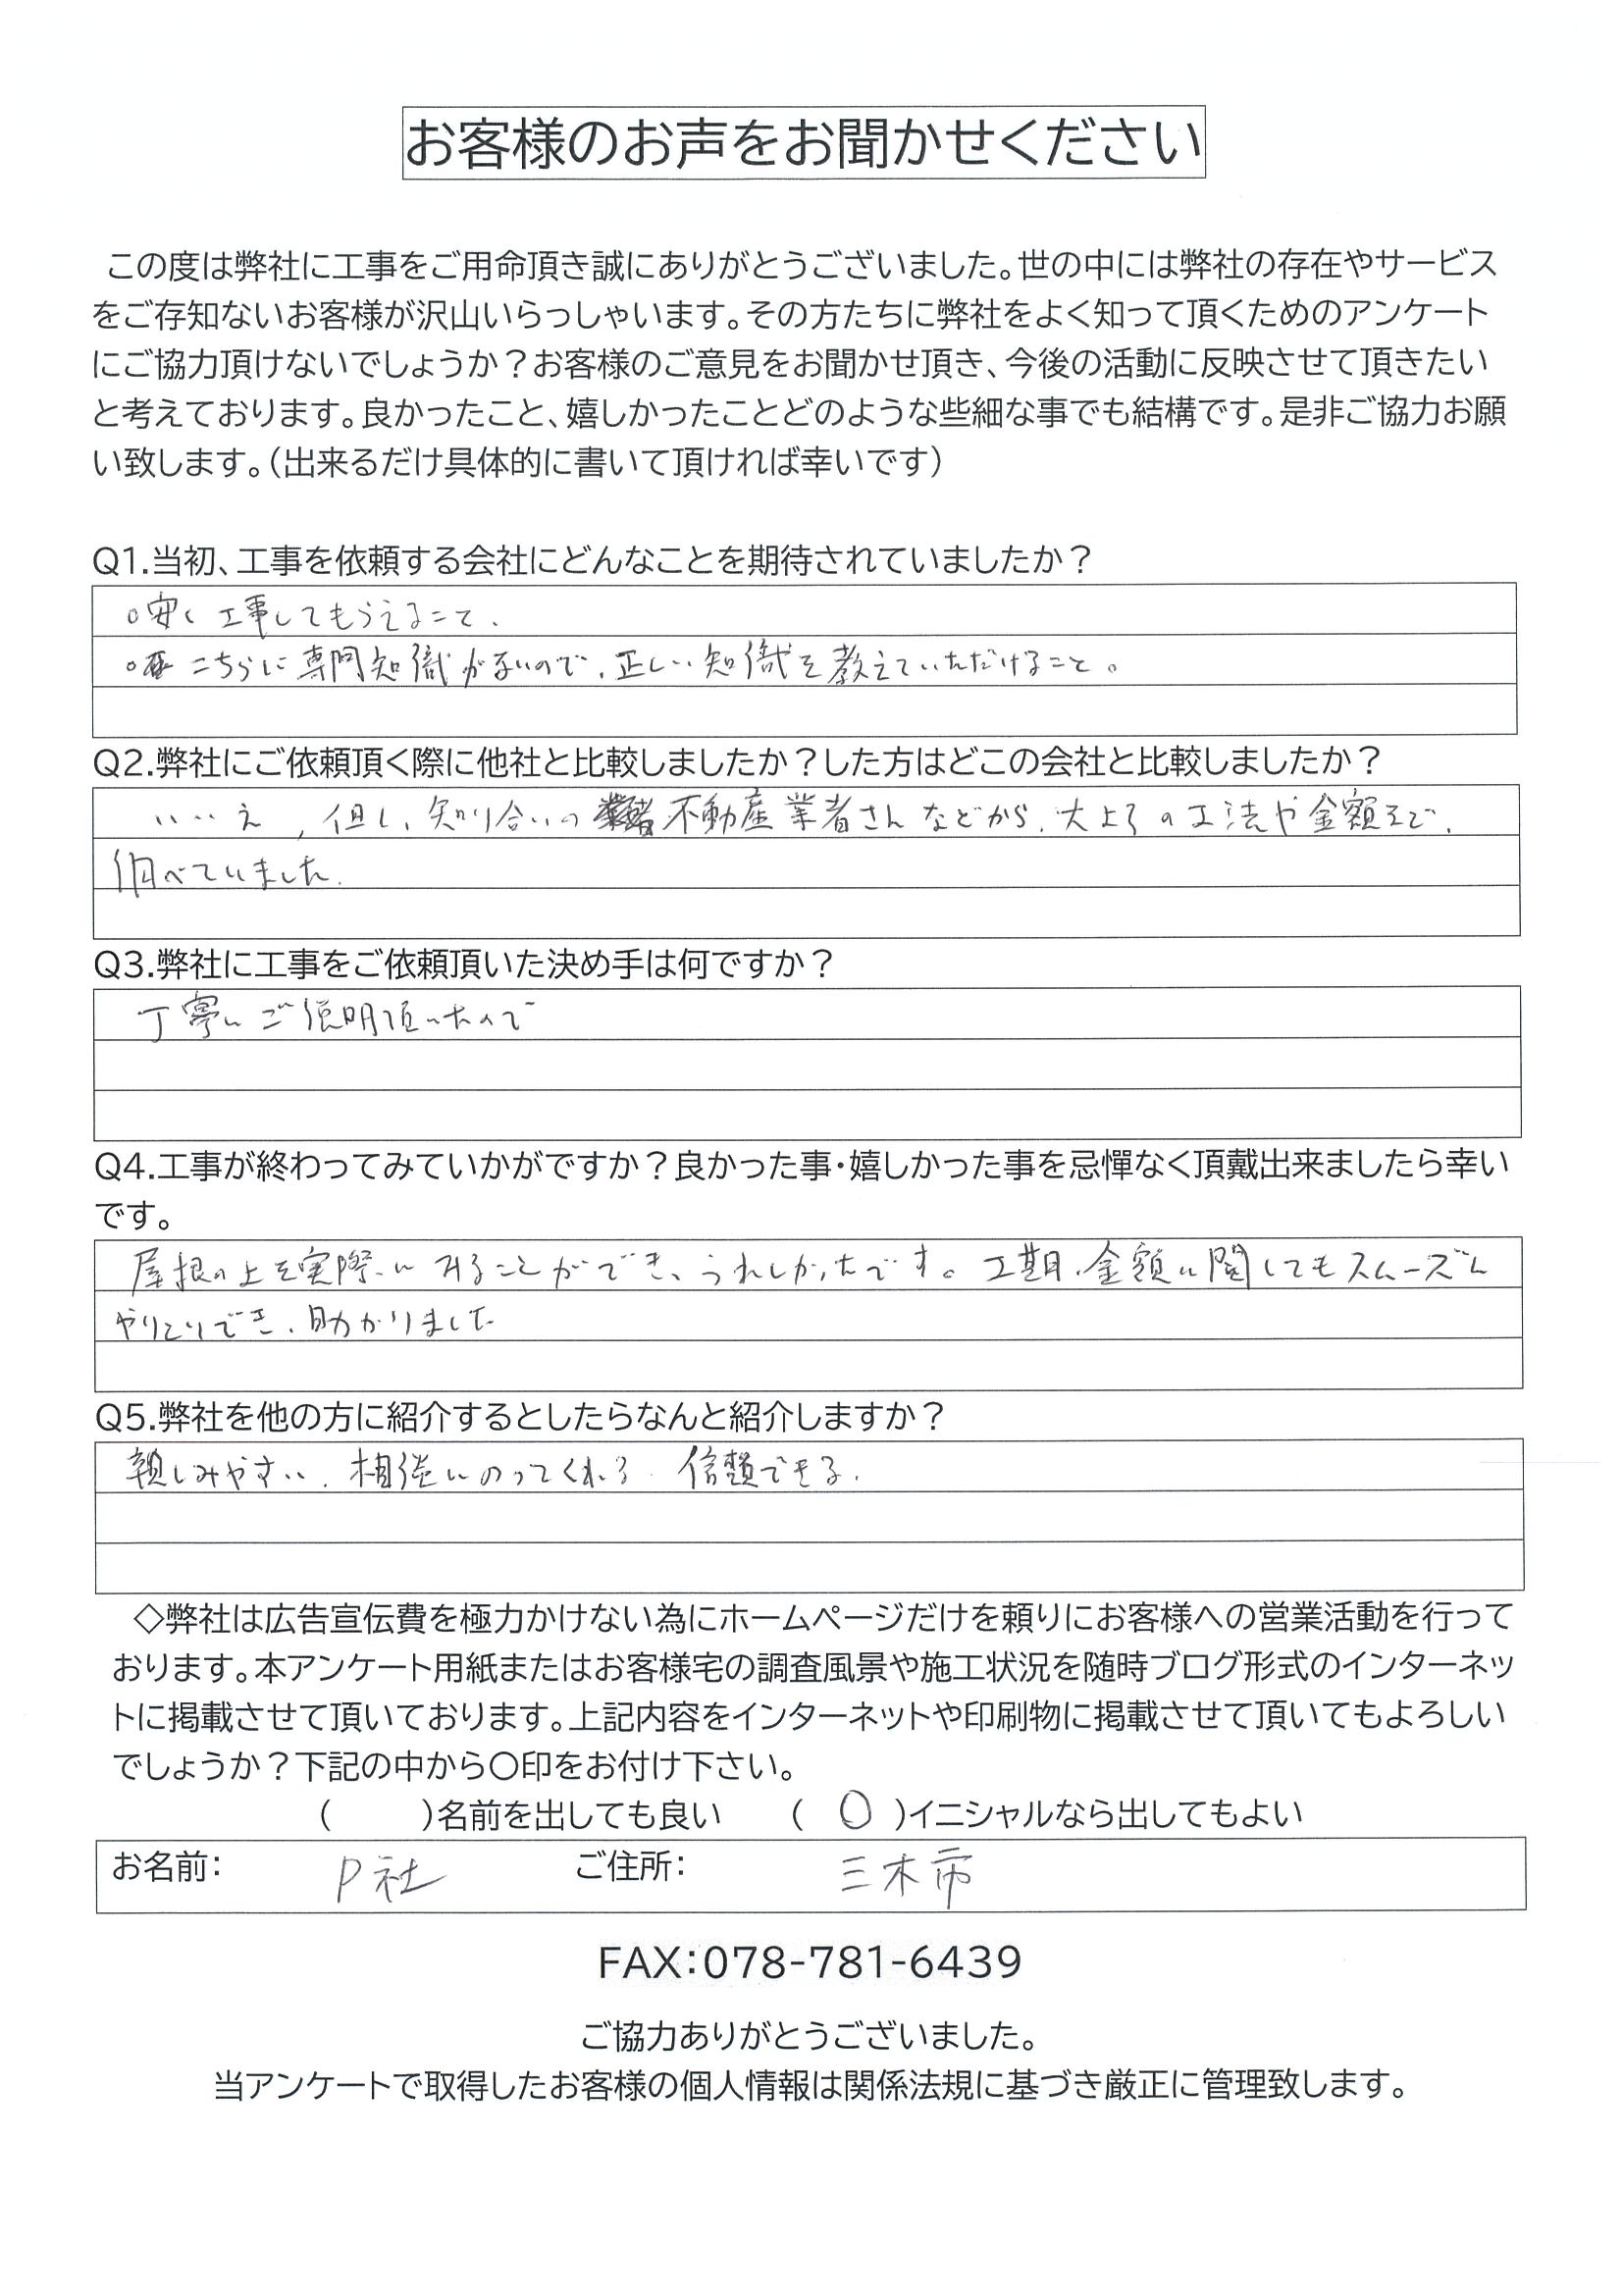 お客様のお声をお聞かせください
この度は弊社に工事をご用命頂き誠にありがとうございました。世の中には弊社の存在やサービス
をご存知ないお客様が沢山いらっしゃいます。その方たちに弊社をよく知って頂くためのアンケート
にご協力頂けないでしょうか？お客様のご意見をお聞かせ頂き、今後の活動に反映させて頂きたい
と考えております。良かったこと、嬉しかったことどのような些細な事でも結構です。是非ご協力お願
い致します。（出来るだけ具体的に書いて頂ければ幸いです）
Q1.当初、工事を依頼する会社にどんなことを期待されていましたか？
○安く工事してもらえること、
○こちらに専門知識がないので、正しい知識を教えていただけること。
Q2.弊社にご依頼頂く際に他社と比較しましたか？した方はどこの会社と比較しましたか？
いいえ、但し、知り合いの不動産業者さんなどから、大よその工法や金額まで、
調べていました。
Q3.弊社に工事をご依頼頂いた決め手は何ですか？
丁寧にご説明頂いたので
Q4.工事が終わってみていかがですか？良かった事・嬉しかった事を忌憚なく頂戴出来ましたら幸い
です。
屋根の上を実際にみることができ、うれしかったです。工期、金額に関してもスムーズに
やりとりでき、助かりました
Q5.弊社を他の方に紹介するとしたらなんと紹介しますか？
親しみやすい、相談にのってくれる、信頼できる、
◇弊社は広告宣伝費を極力かけない為にホームページだけを頼りにお客様への営業活動を行って
おります。本アンケート用紙またはお客様宅の調査風景や施工状況を随時ブログ形式のインターネッ
トに掲載させて頂いております。上記内容をインターネットや印刷物に掲載させて頂いてもよろしい
でしょうか？下記の中から○印をお付け下さい。
（　　）名前を出しても良い　（ ○ ）イニシャルなら出してもよい
お名前： P社 ご住所： 三木市
FAX：078-781-6439
ご協力ありがとうございました。
当アンケートで取得したお客様の個人情報は関係法規に基づき厳正に管理致します。